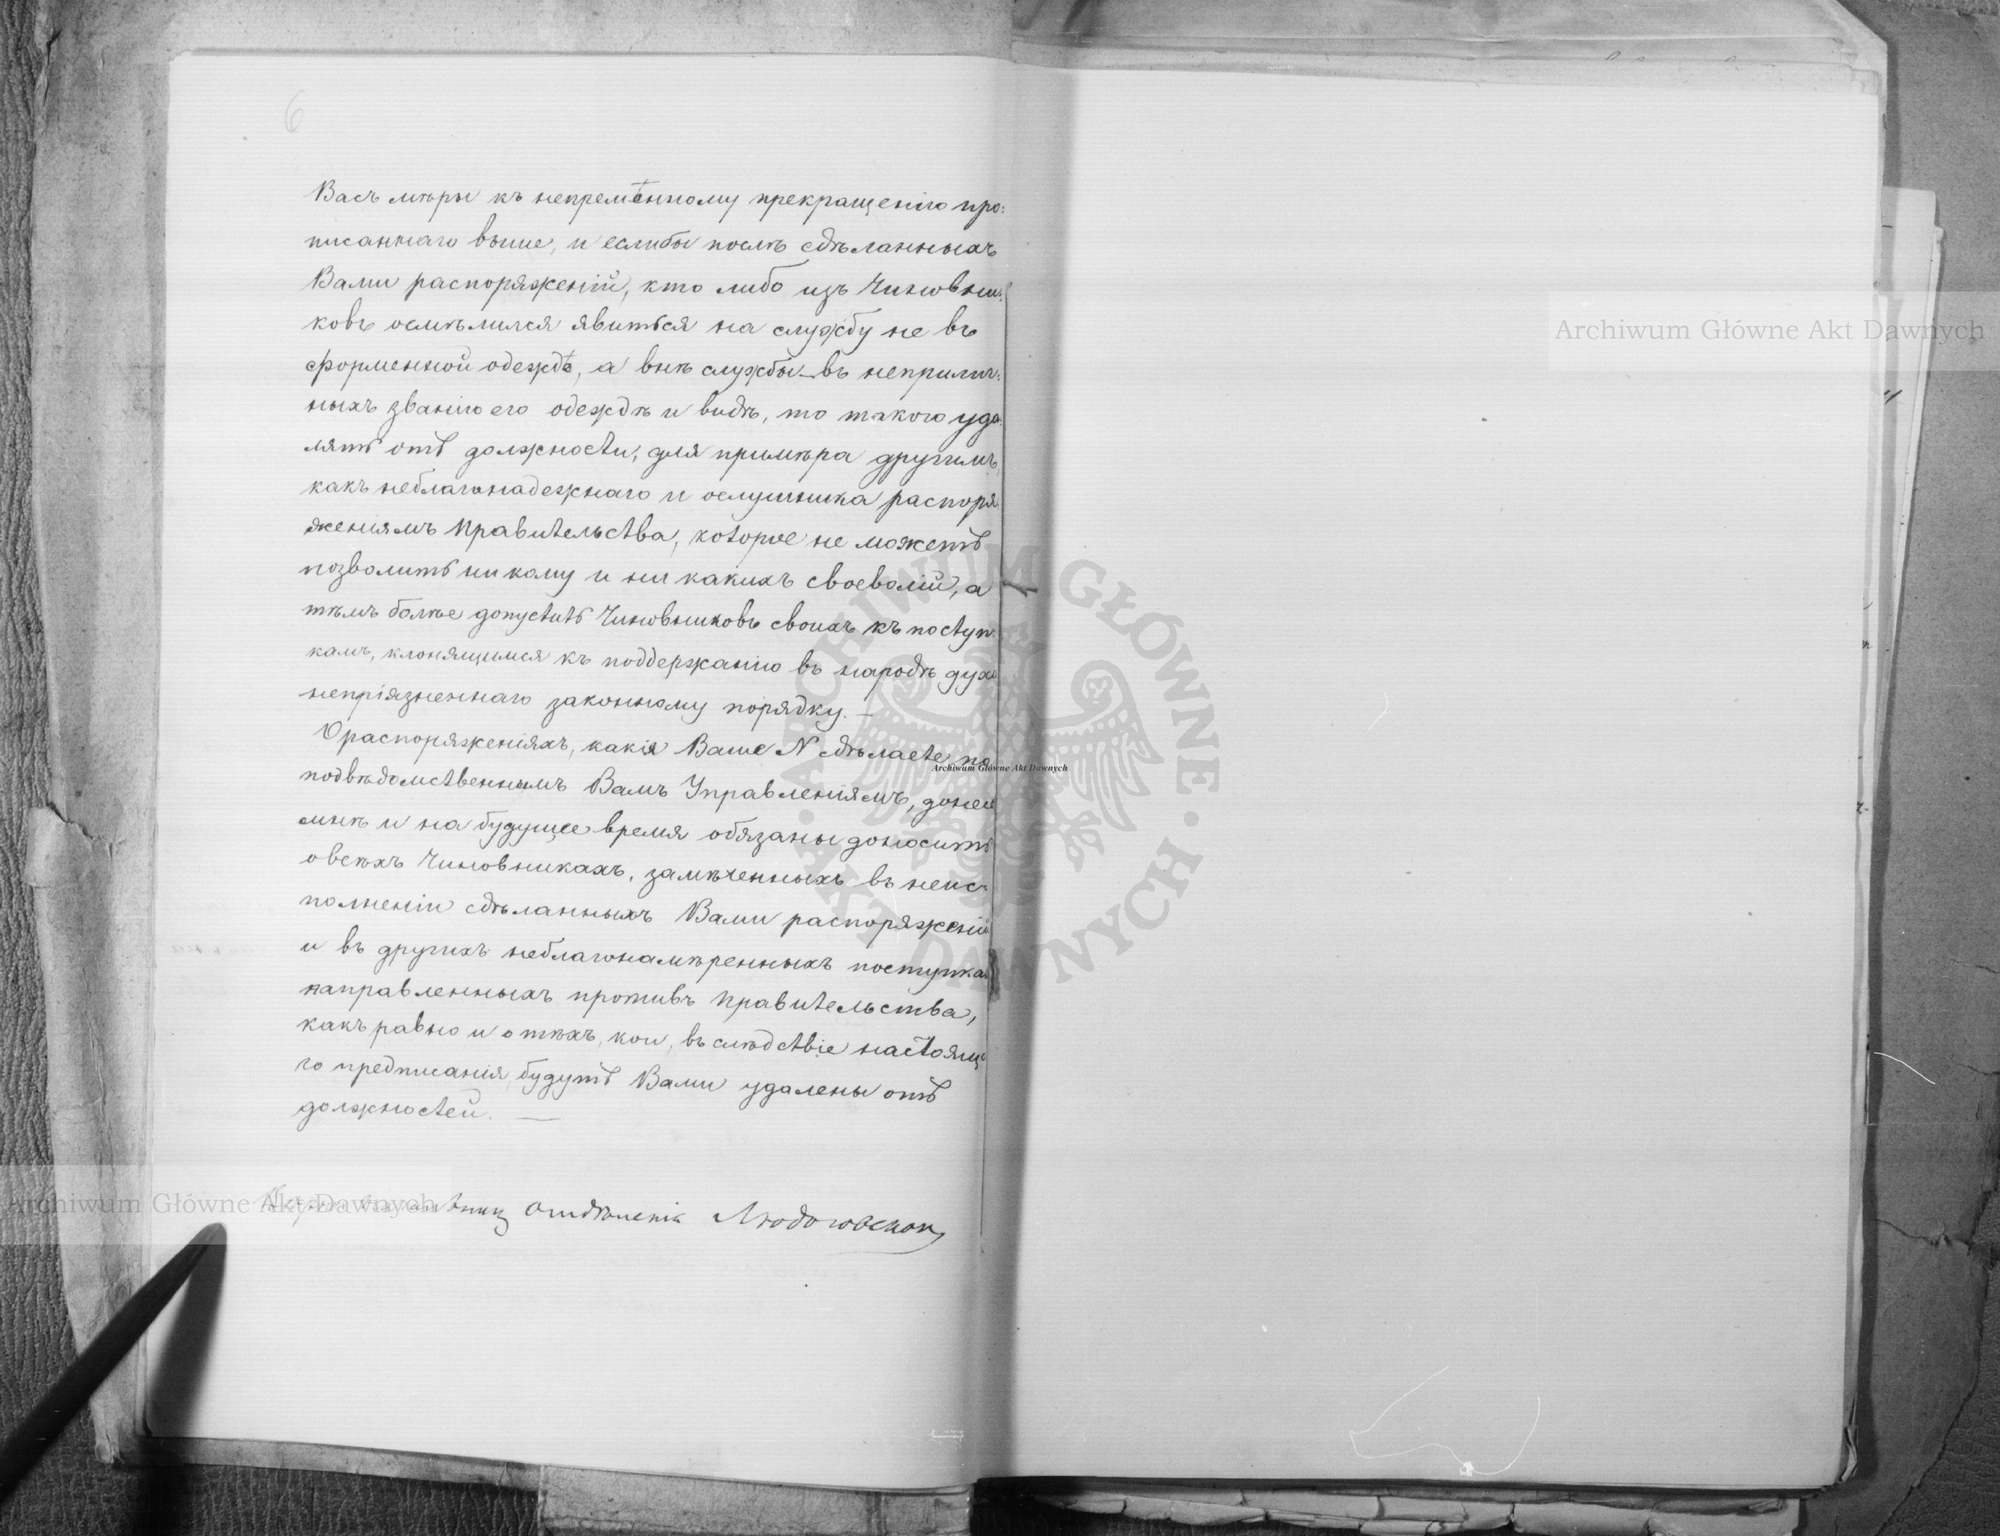 6
Васъ мѣры къ непремѣнному прекращенію про:
писаннаго выше, и еслибы послѣ сдѣланныхъ
Вами распоряженій, кто либо изъ Чиновни:
ковъ осмѣлился явиться на службу не въ
форменной одеждѣ, а внѣ службы — въ неприлич:
ныхъ званію его одеждѣ и видѣ, то такого уда:
лять отъ должности, для примѣра другимъ,
какъ неблагонадежнаго и ослушника распоря
женіямъ Правительства, которое не можетъ
позволить ни кому и ни какихъ своеволій, а
тѣмъ болѣе допустить Чиновниковъ своихъ къ поступ
камъ, клонящимся къ поддержанію въ народѣ духа
непріязненнаго законному порядку. —
О распоряженіяхъ, какія Ваше N сдѣлаете по
подвѣдомственнымъ Вамъ Управленіямъ, донести
мнѣ и на будущее время обязаны доносить
о всѣхъ Чиновникахъ, замѣченныхъ въ неис-
полненіи сдѣланныхъ Вами распоряженій
и въ другихъ неблагонамѣренныхъ поступкахъ
направленныхъ противъ Правительства,
какъ равно и о тѣхъ, кои, въ слѣдствіе настояща
го предписанія, будутъ Вами удалены отъ
должностей. —
Отдѣленія
Archiwum Główne Akt Dawnych
Archiwum Główne Akt Dawnych
Archiwum Główne Akt Dawnych
ARCHIWUM GŁÓWNE · AKT DAWNYCH ·